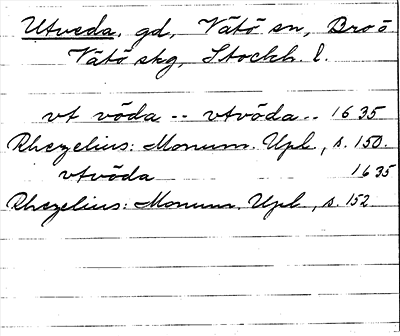 Utveda, gd, Vätö sn, Bro o
Vätö skg, Stockh. l.
vt vöda -- vtvöda -- 1635
Rhezelius: Monum. Upl., s. 150.
vtvöda 1635
Rhezelius: Monum. Upl., s. 152